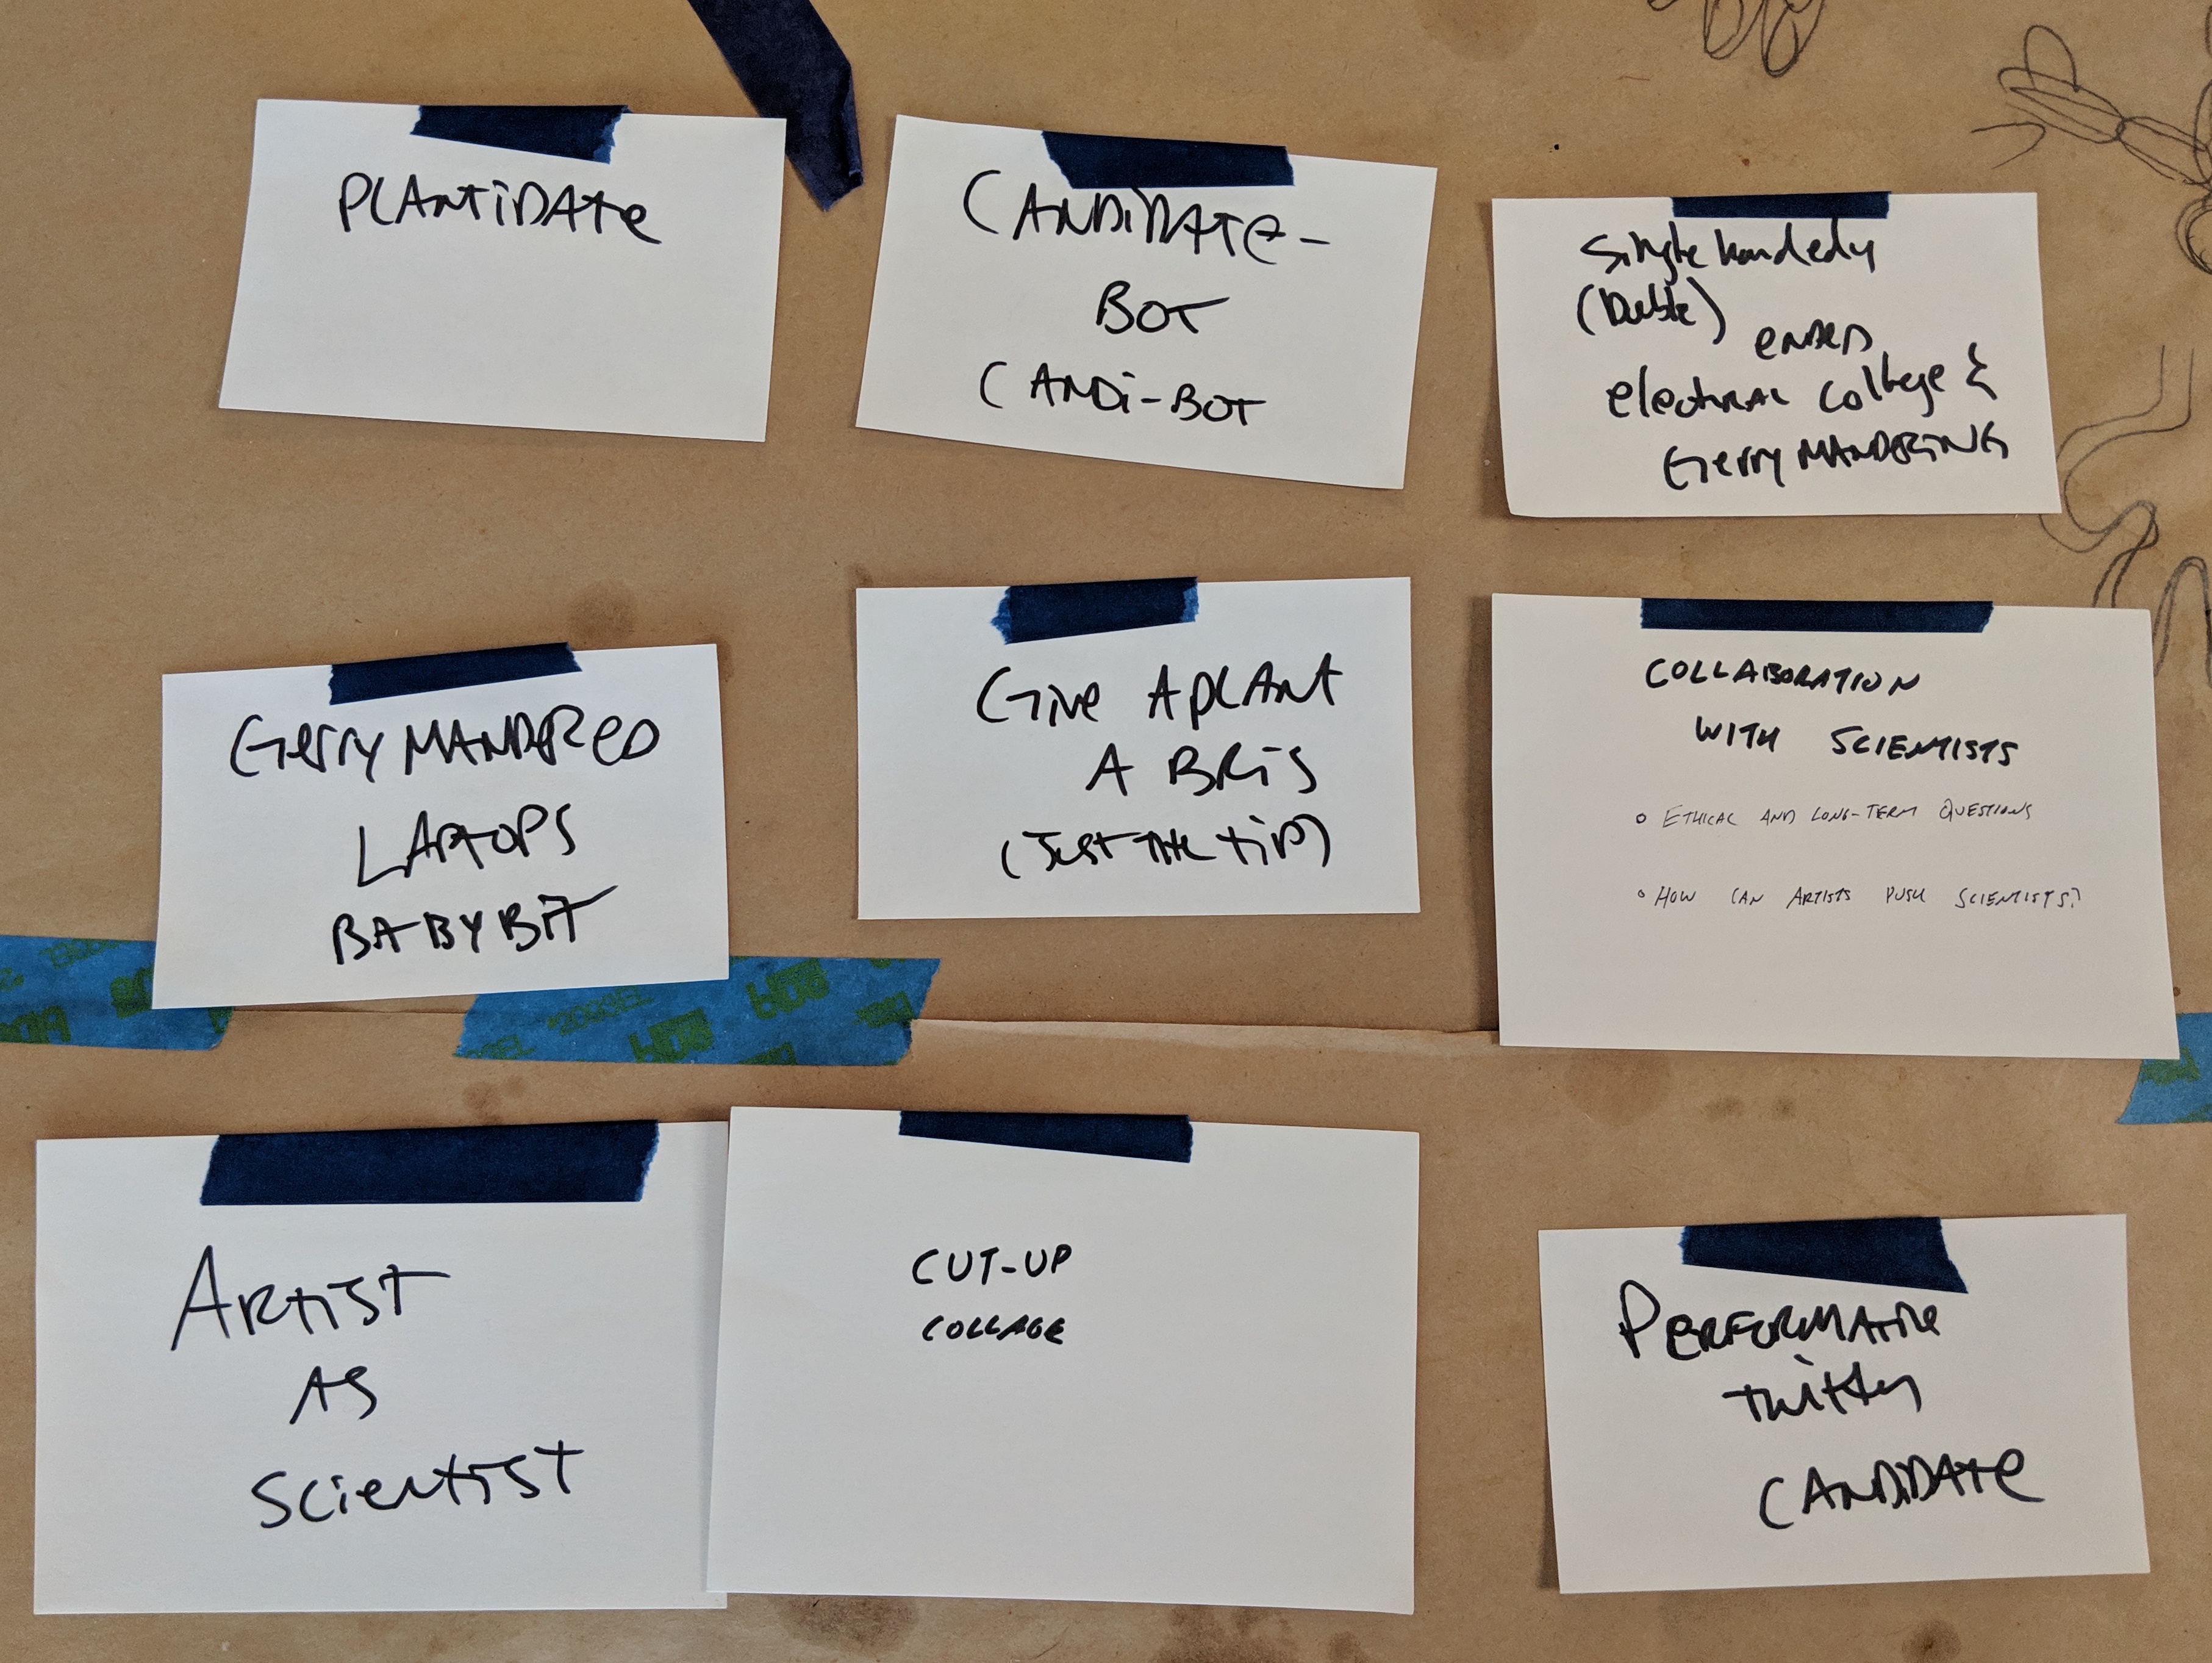 PLANTIDATE
CANDIDATE-
BOT
CANDI-BOT
Single handedly
(Double)
ENDED
electoral college &
GerryMANDERING
GerryMANDERED
LAPTOPS
BABYBIT
Give A PLANT
A BRIS
(Just THE tip)
COLLABORATION
WITH SCIENTISTS
ETHICAL AND LONG-TERM QUESTIONS
HOW CAN ARTISTS PUSH SCIENTISTS?
ARTIST
AS
SCIENTIST
CUT-UP
COLLAGE
PERFORMATIVE
CANDIDATE